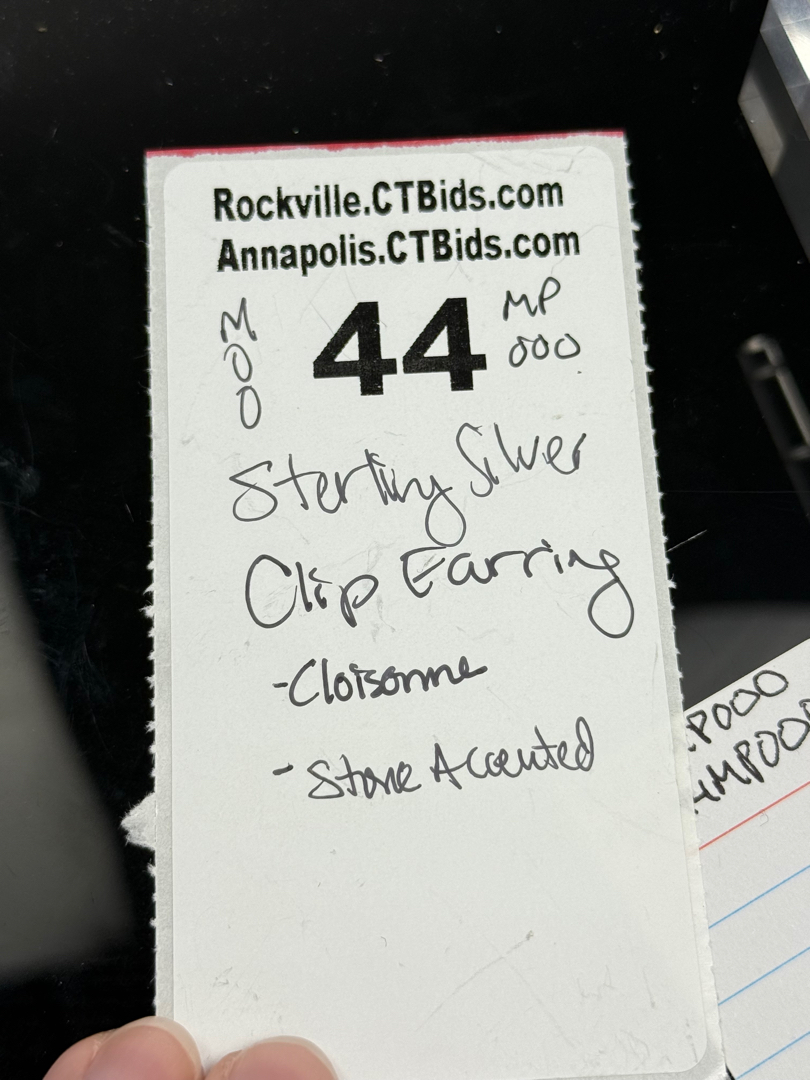 Rockville.CTBids.com
Annapolis.CTBids.com
M
0
0
44
MP
000
Sterling Silver
Clip Earring
-Cloisonne
- Stone Accented
P000
MP000